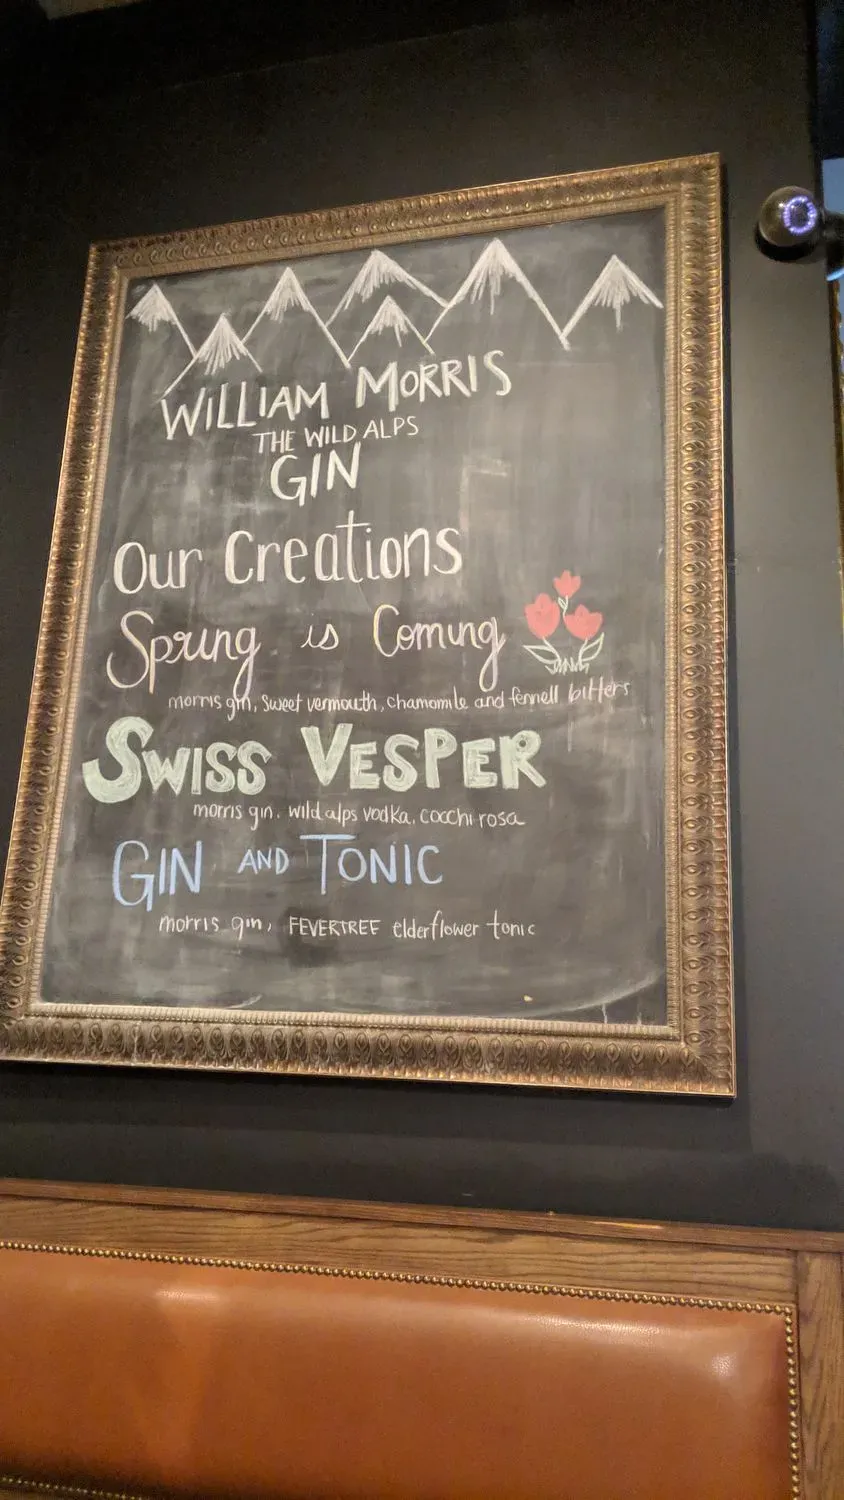 WILLIAM MORRIS
THE WILD ALPS
GIN
Our Creations
Spring is Coming
morris gin, sweet vermouth, chamomile and fennell bitters
SWISS VESPER
morris gin, wild alps vodka, cocchi rosa
GIN AND TONIC
morris gin, FEVERTREE elderflower tonic